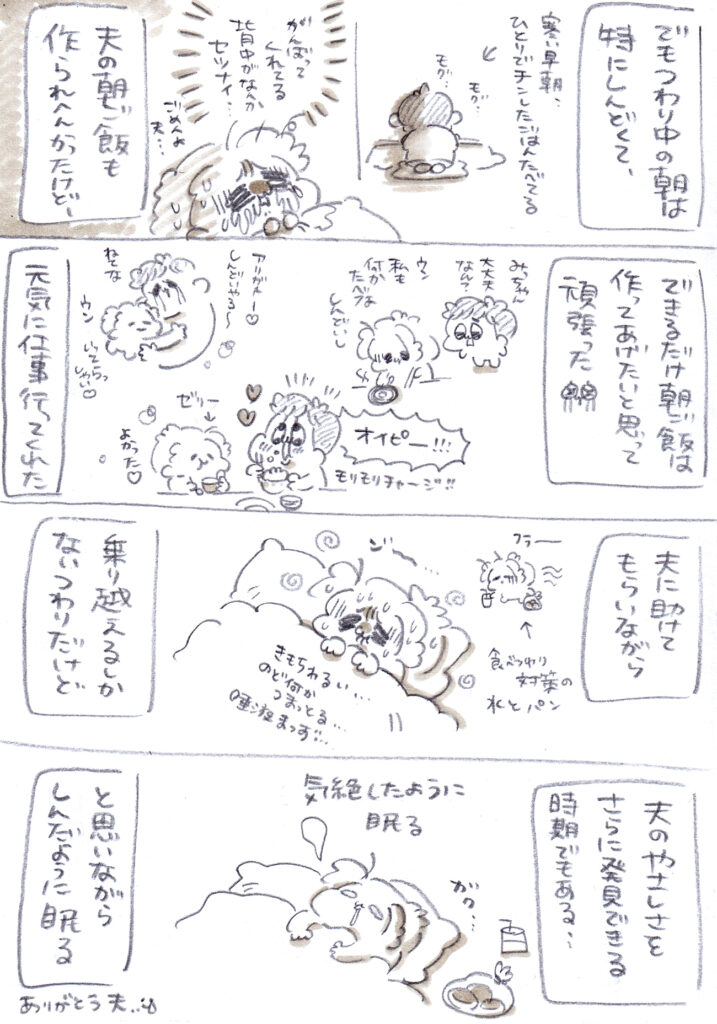 でもつわり中の朝は
特にしんどくて、
寒い早朝、
ひとりでチンしたごはんたべてる
モグ…
モグ…
がんばって
くれてる
背中がなんか
セツナイ…
ごめんよ
夫…
夫の朝ご飯も
作られへんかったけど、
できるだけ朝ご飯は
作ってあげたいと思って
頑張った
みっちゃん
大丈夫
なん?
ウン
私も
何かたべな
しんどいし
アリガトー♡
しんどいやろ〜
ねてな
ウン
いってらっ
しゃい♡
オイピー!!!
モリモリチャージ!!
ゼリー
よかった♡
元気に仕事行ってくれた
夫に助けて
もらいながら
フラー
食べつわり
対策の
水とパン
ジ〜…
きもちわるい…
のど何か
つまっとる…
唾液まっず…
乗り越えるしか
ないつわりだけど
夫のやさしさを
さらに発見できる
時期でもある…
気絶したように
眠る
ガク…
と思いながら
しんだように眠る
ありがとう夫…